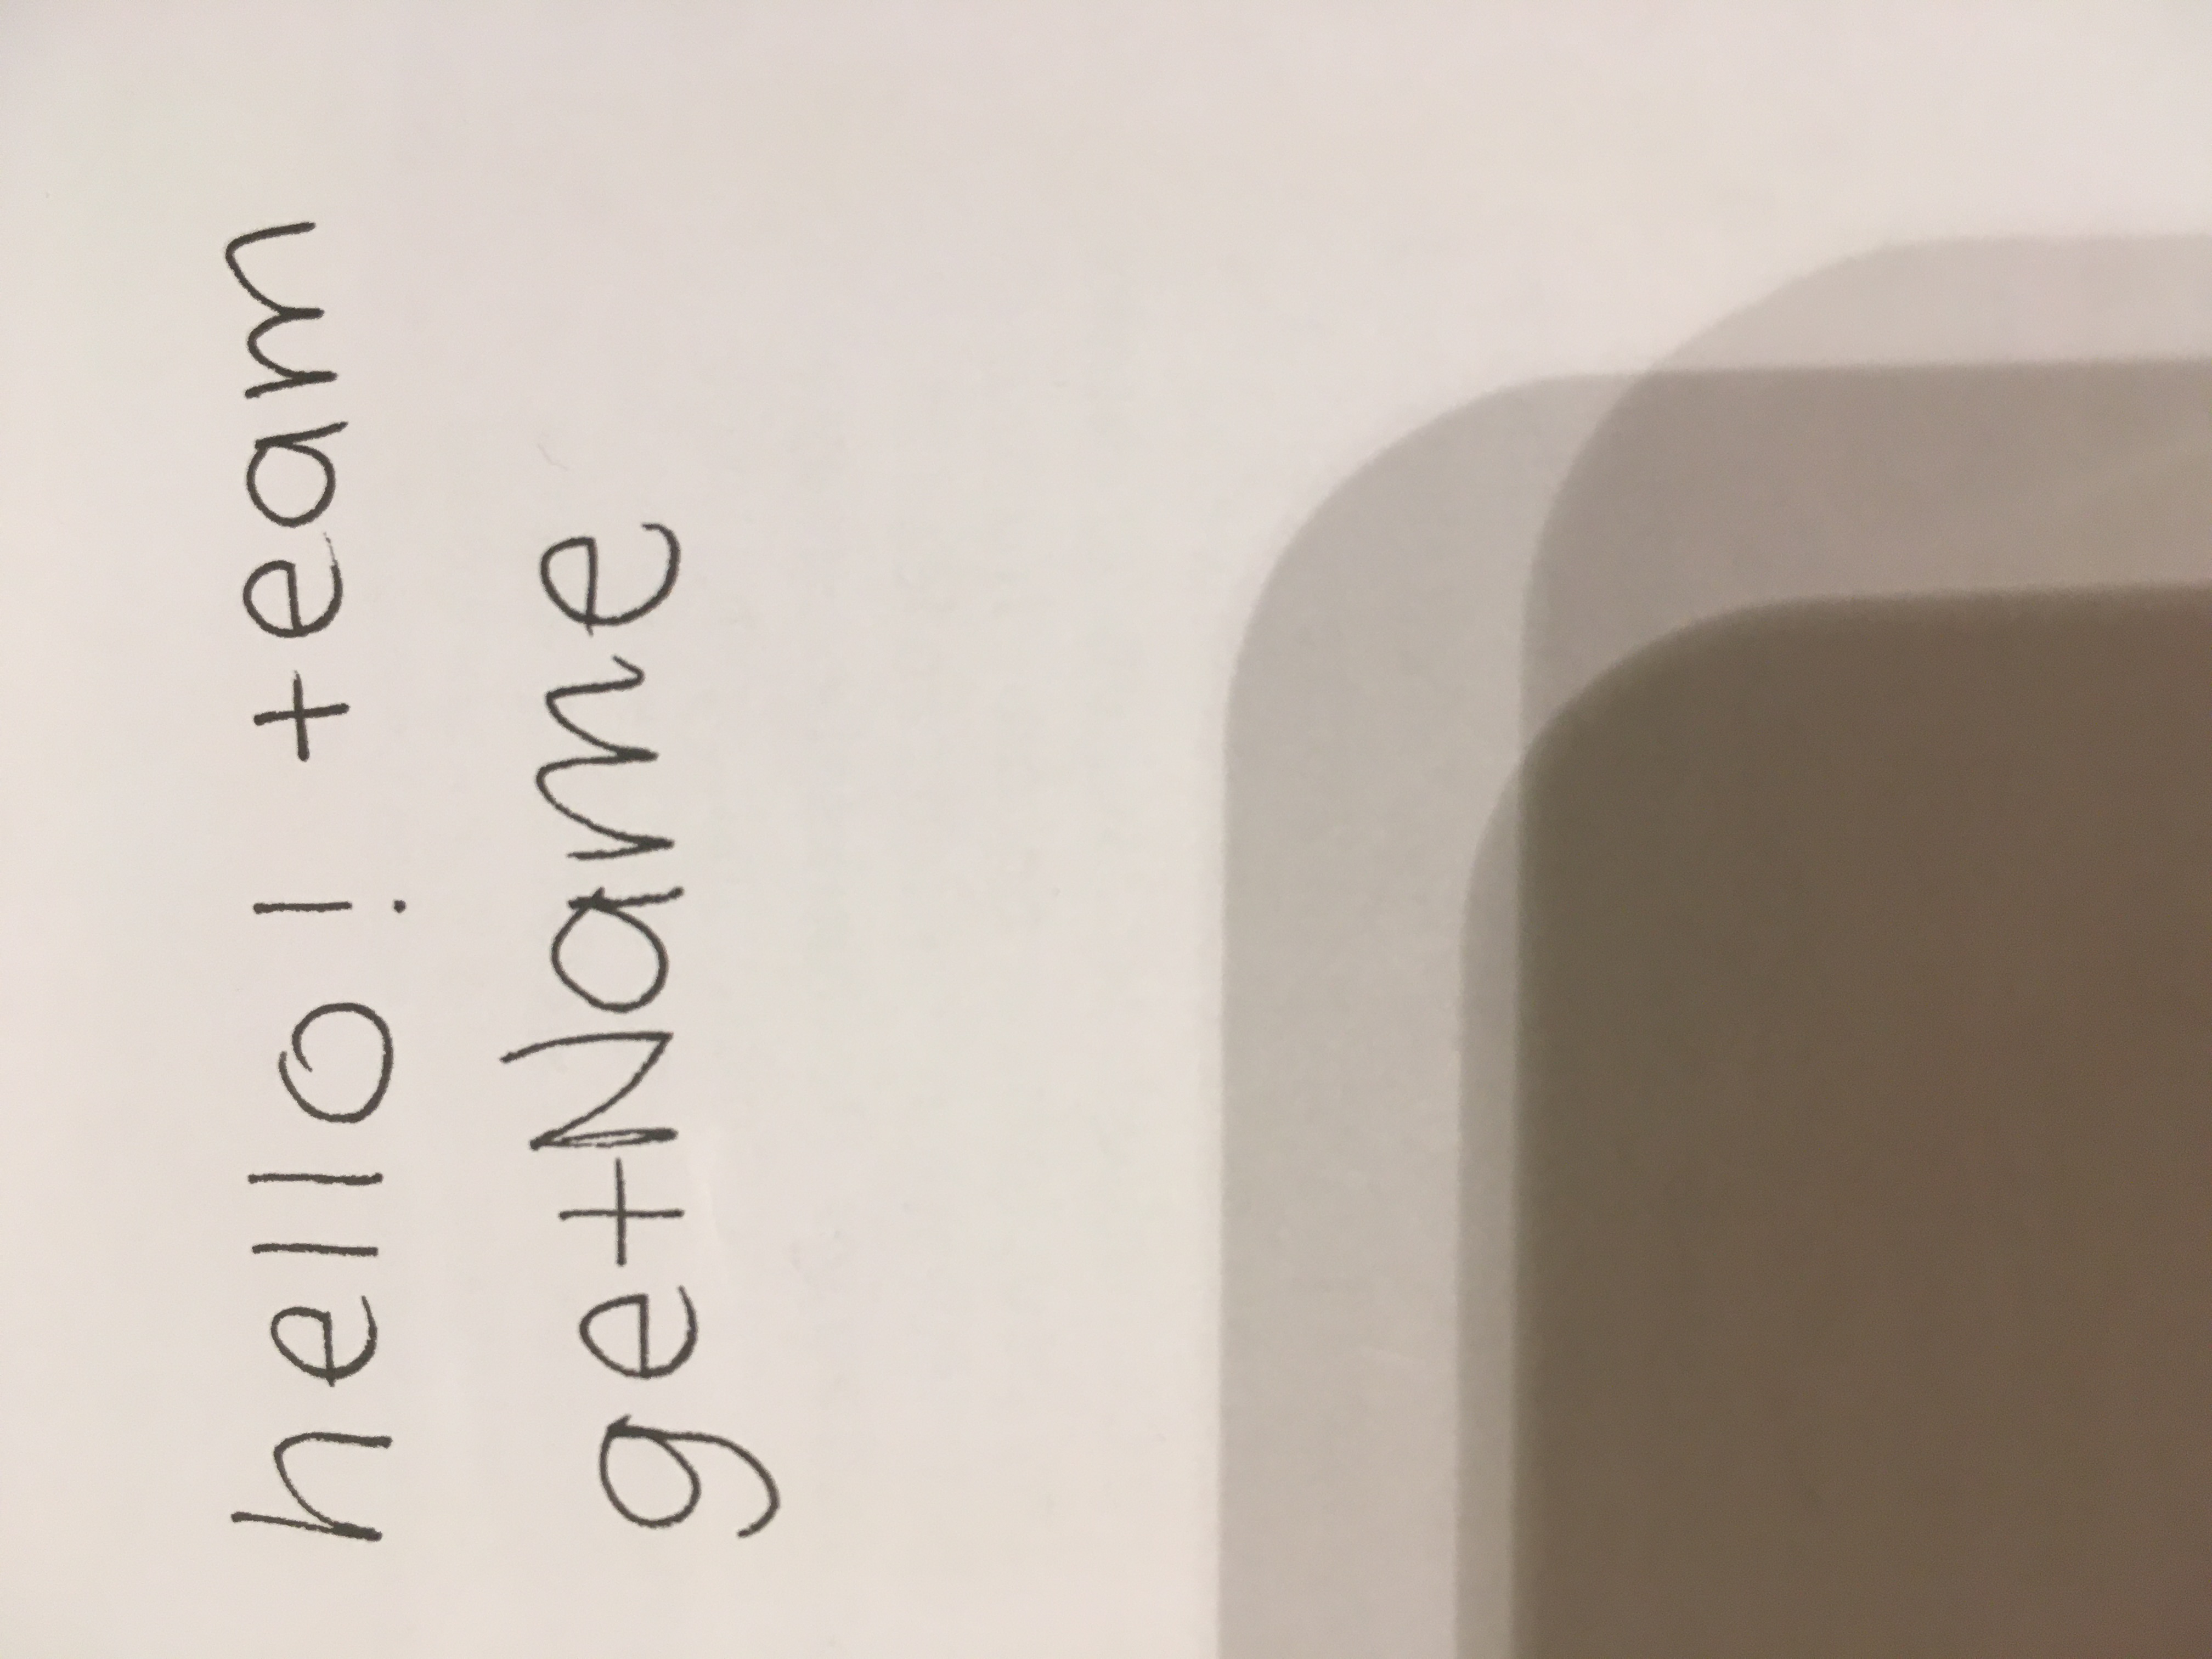 hello! team
getName